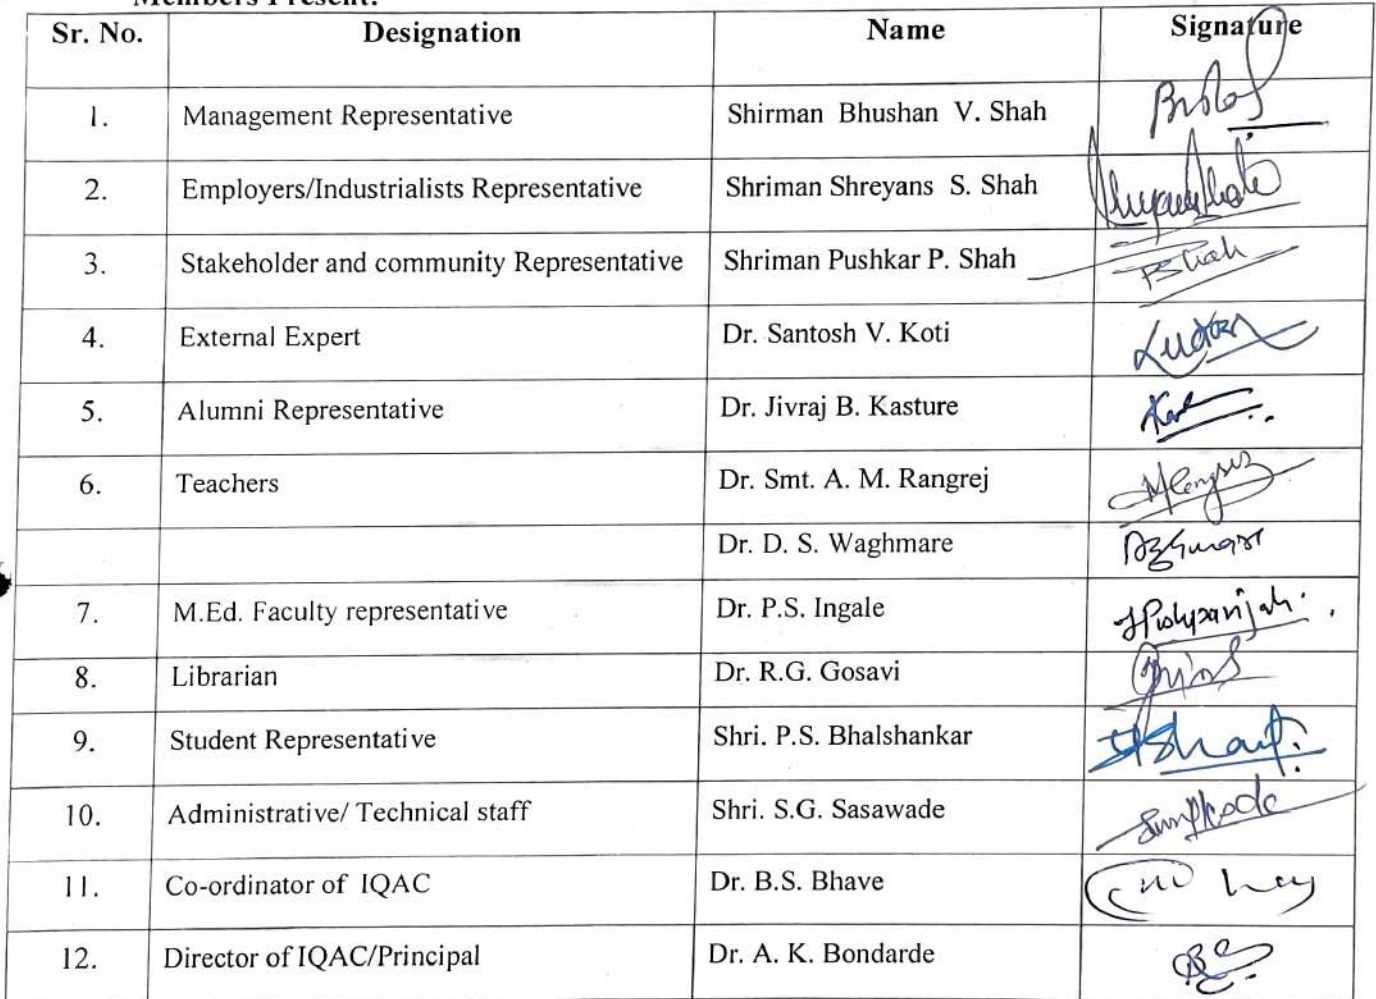 Members Present:
Sr. No. Designation Name Signature
1. Management Representative Shirman Bhushan V. Shah
2. Employers/Industrialists Representative Shriman Shreyans S. Shah
3. Stakeholder and community Representative Shriman Pushkar P. Shah
4. External Expert Dr. Santosh V. Koti
5. Alumni Representative Dr. Jivraj B. Kasture
6. Teachers Dr. Smt. A. M. Rangrej
Dr. D. S. Waghmare
7. M.Ed. Faculty representative Dr. P.S. Ingale
8. Librarian Dr. R.G. Gosavi
9. Student Representative Shri. P.S. Bhalshankar
10. Administrative/ Technical staff Shri. S.G. Sasawade
11. Co-ordinator of IQAC Dr. B.S. Bhave
12. Director of IQAC/Principal Dr. A. K. Bondarde